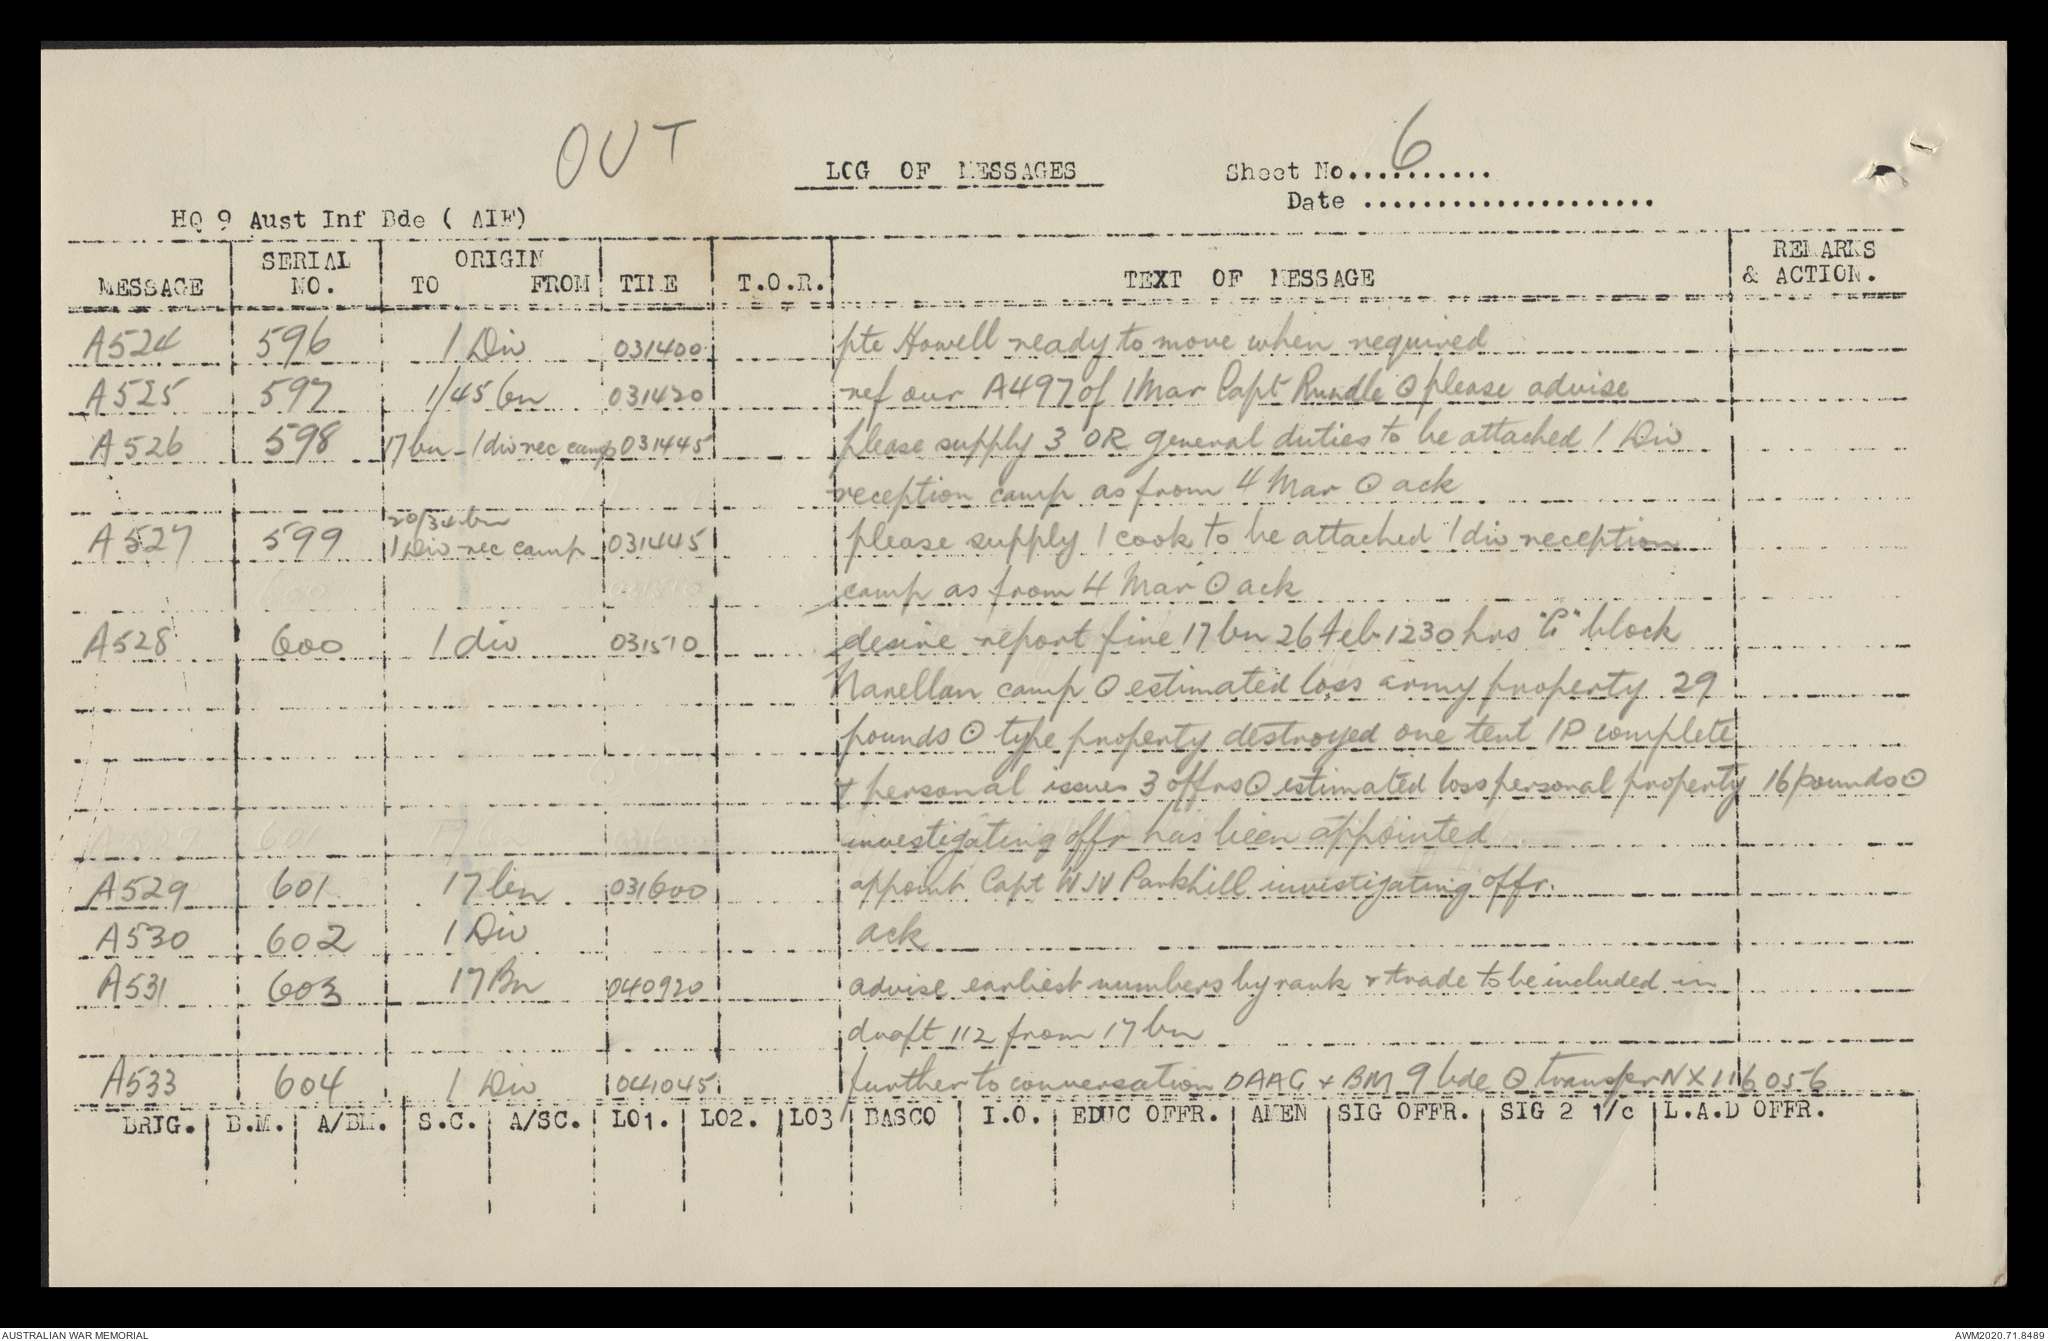 OUT
LOG OF MESSAGES
Sheet No.......... 6
Date .....................
HQ 9 Aust Inf Bde ( AIF)
MESSAGE | SERIAL NO. | ORIGIN TO FROM | TIME | T.O.R. | TEXT OF MESSAGE | REMARKS & ACTION.
A524 | 596 | 1 Div | 031400 | pte Howell ready to move when required
A525 | 597 | 1/45 bn | 031420 | ref our A497 of 1 Mar Capt Rundle ⊙ please advise
A526 | 598 | 17 bn - 1 div rec camp | 031445 | please supply 3 OR general duties to be attached 1 Div
reception camp as from 4 Mar ⊙ ack
20/34 bn
A527 | 599 | 1 Div rec camp | 031445 | please supply 1 cook to be attached 1 div reception
camp as from 4 Mar ⊙ ack
A528 | 600 | 1 div | 031510 | desire report fire 17 bn 26 Feb 1230 hrs block
Narellan camp ⊙ estimated loss army property 29
pounds ⊙ type property destroyed one tent IP complete
+ personal issues 3 offrs ⊙ estimated loss personal property 16 pounds ⊙
investigating offr has been appointed
A529 | 601 | 17 bn | 031600 | appoint Capt Parkhill investigating offr.
A530 | 602 | 1 Div | ack
A531 | 603 | 17 Bn | 040920 | advise earliest numbers by rank + trade to be included in
draft 112 from 17 bn
A533 | 604 | 1 Div | 041045 | further to conversation DAAG + BM 9 bde ⊙ transfer NX116056
BRIG. | B.M. | A/BM. | S.C. | A/SC. | LO1. | LO2. | LO3 | BASCO | I.O. | EDUC OFFR. | AMEN | SIG OFFR. | SIG 2 1/c | L.A.D OFFR.
AUSTRALIAN WAR MEMORIAL
AWM2020.71.8489